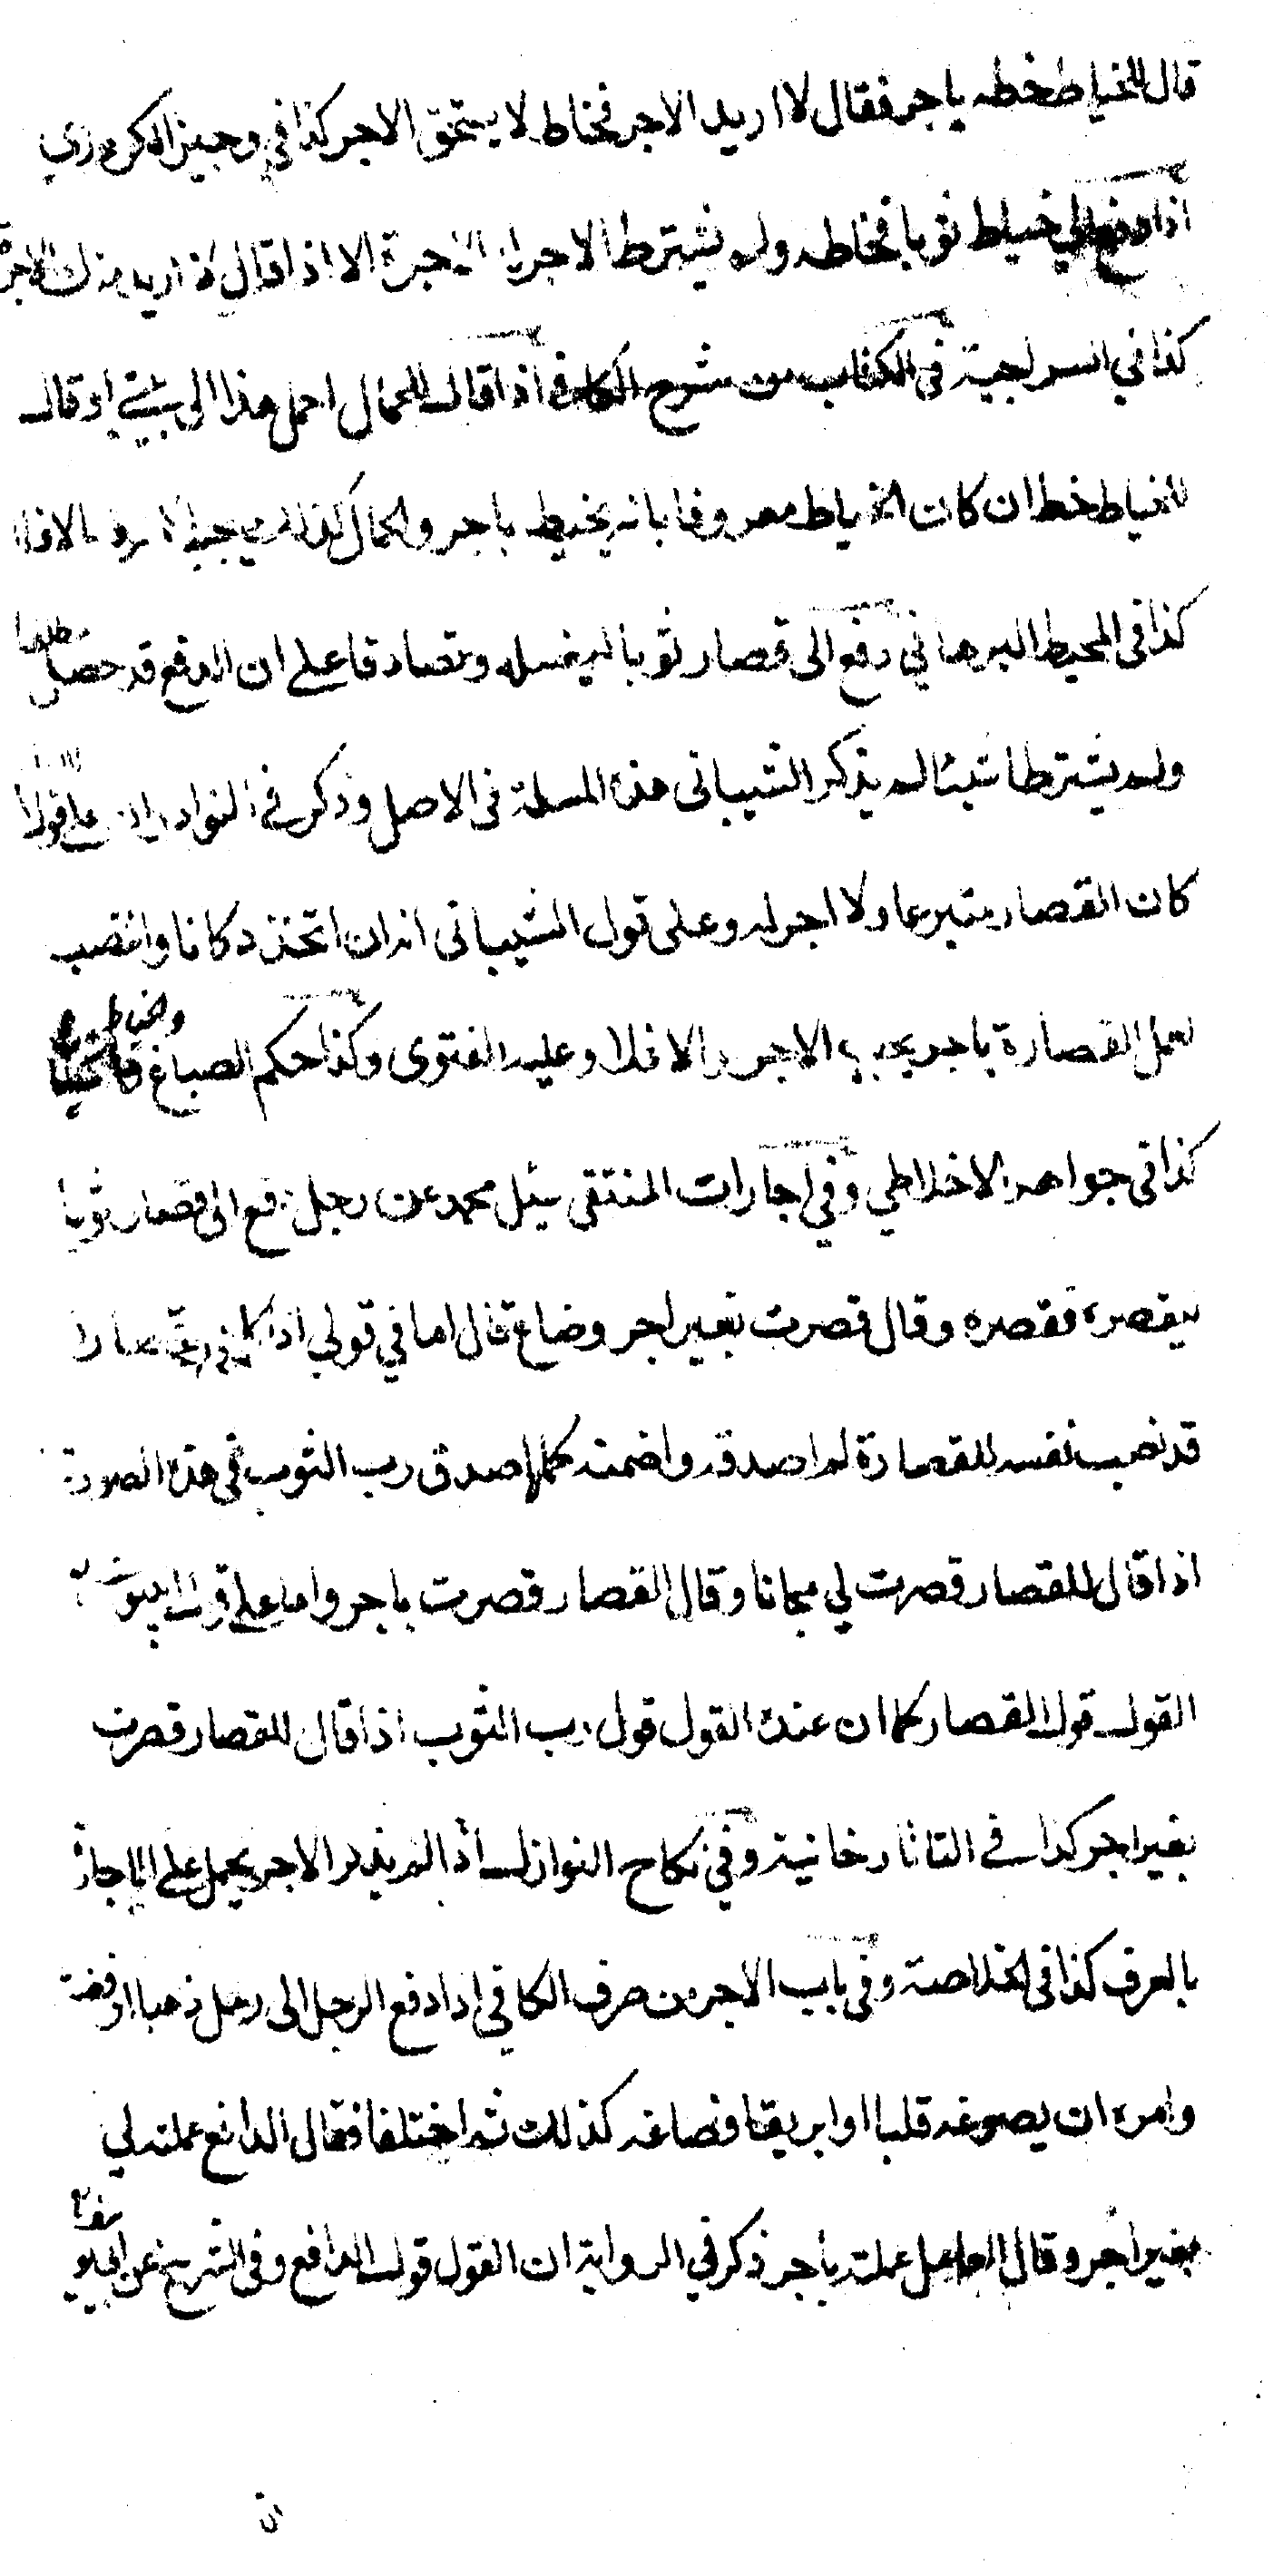 قال للخياط خطه باجر فقال لا اريد الاجر فخاط لا يستحق الاجر كذا في وجيز الكردري
اذا دفع الى خياط ثوبا فخاطه ولم يشترط الاجر الاجرة الا اذا قال لا اريد منك الاجرة
كذا في السراجية في الكفاب من شرح الكافي اذا قال للحمال احمل هذا الى بيتي او قال
للخياط خط ان كان الخياط معروفا بانه يخيط باجر والحمال كذلك يجب الاجر والا فلا
كذا في المحيط البرهاني دفع الى قصار ثوبا ليغسله وتصادقا على ان الدفع قد حصل مطلقا
ولم يشترطا شيئا لم يذكر الشيباني هذه المسلة في الاصل وذكر في النوادر ان على قول
كان القصار متبرعا ولا اجر له وعلى قول الشيباني انه ان اتخذ دكانا وانتصب
لعمل القصارة باجر يجب الاجر والا فلا وعليه الفتوى وكذا حكم الصباغ والخياط
كذا في جواهر الاخلاطي وفي اجارات المنتقى سئل محمد عن رجل دفع الى قصار ثوبا
ليقصره فقصره وقال قصرت بغير اجر وضاع قال اما في قولي اذا كان قصارا
قد نصب نفسه للقصارة لم اصدقه واضمنه كما اصدق رب الثوب في هذه الصورة
اذا قال للقصار قصرت لي مجانا وقال القصار قصرت باجر واما على قول ابي يوسف
القول قول القصار كما ان عنده القول قول رب الثوب اذا قال للقصار قصرت
بغير اجر كذا في التاتارخانية وفي نكاح النوازل اذا لم يذكر الاجر يحمل على الاجارة
بالعرف كذا في الخلاصة وفي باب الاجر من صرف الكافي اذا دفع الرجل الى رجل ذهبا او فضة
وامره ان يصوغه قلبا او ابريقا فصاغه كذلك ثم اختلفا فقال الدافع عملته لي
بغير اجر وقال العامل عملته باجر ذكر في الرواية ان القول قول الدافع وفي الشرح عن ابي يوسف
ان